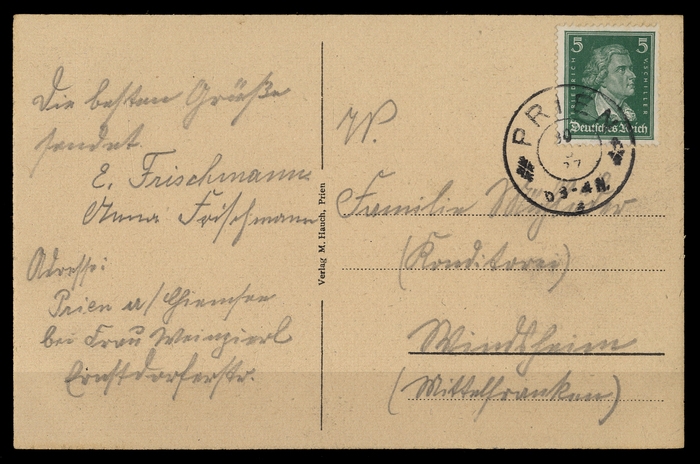 Die besten Grüße
sendet
E. Frischmann
Anna Frischmann
Adresse:
Prien a/Chiemsee
bei Frau Weinzierl
Ernstdorferstr.
Verlag M. Hauch, Prien
5 5
FRIEDRICH V. SCHILLER
Deutsches Reich
PRIEN
3-4 N.
W.
Familie
(Konditorei)
Windsheim
(Mittelfranken)